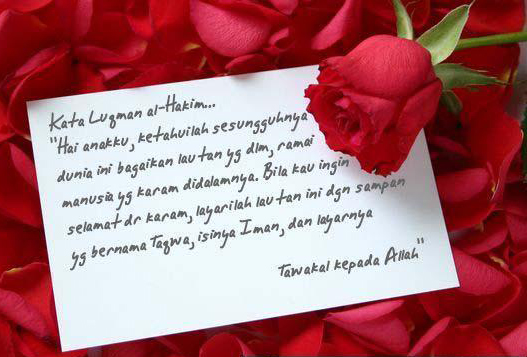 Kata Luqman al-Hakim...
"Hai anakku, ketahuilah sesungguhnya
dunia ini bagaikan lautan yg dlm, ramai
manusia yg karam didalamnya. Bila kau ingin
selamat dr karam, layarilah lautan ini dgn sampan
yg bernama Taqwa, isinya Iman, dan layarnya
Tawakal kepada Allah"